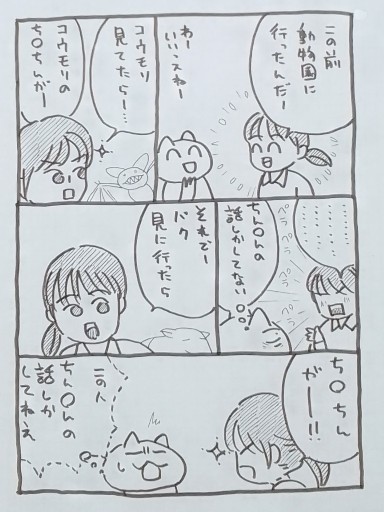 この前
動物園に
行ったんだー
わー
いいっスねー
コウモリ
見てたらー…
コウモリの
ち〇ちんがー
…………
…………
ペラペラペラペラ
ペラペラ
ちん〇んの
話しかしてない…
それでー
バク
見に行ったら
ち〇ちん
がー!!
この人
ちん〇んの
話しか
してねえ